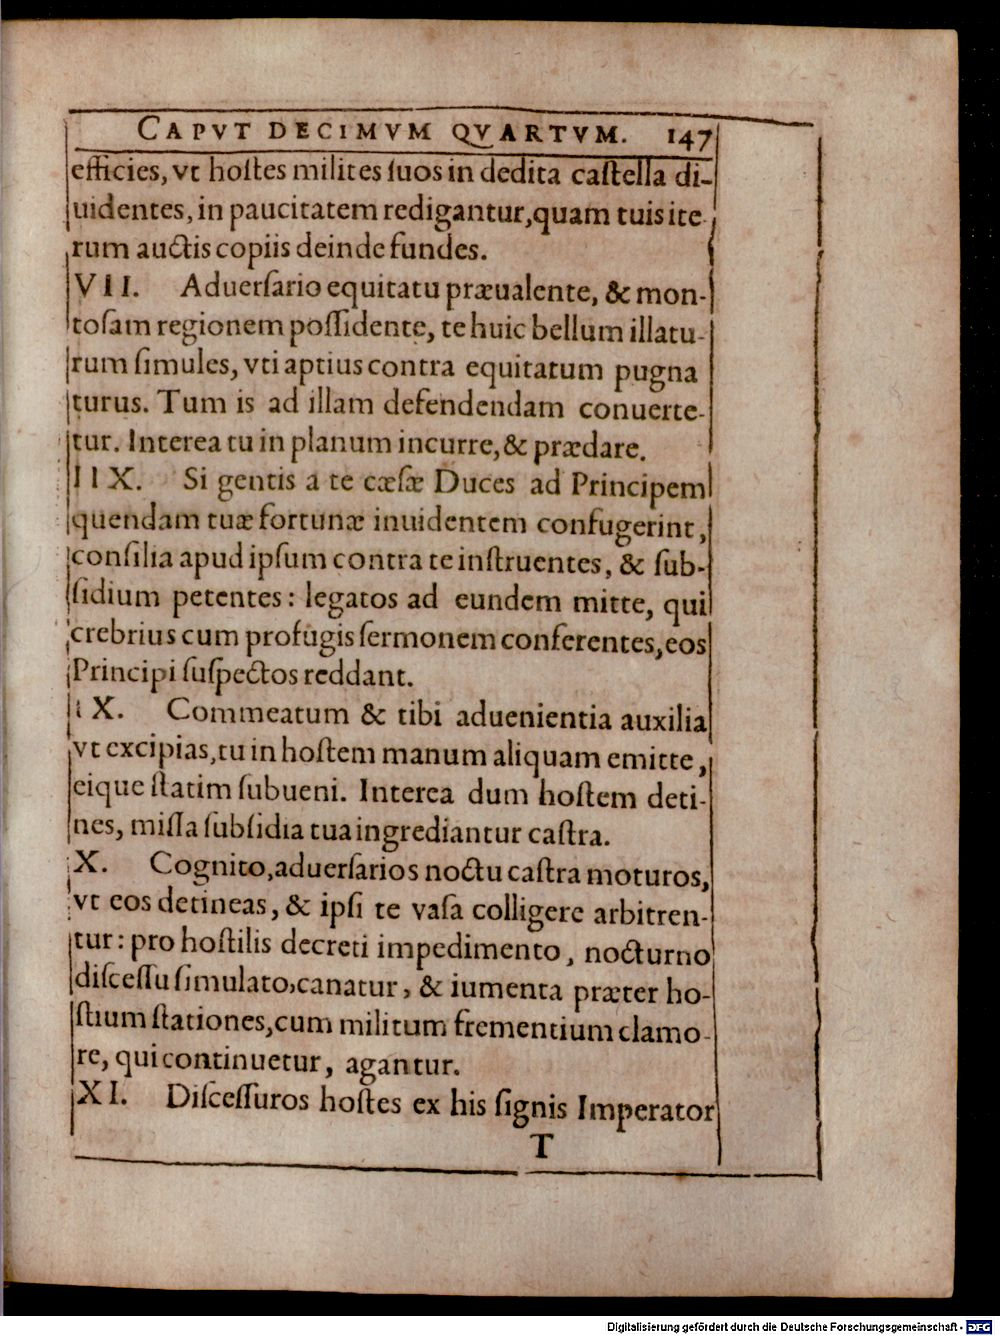 CAPVT DECIMVM QVARTVM. 147
efficies, vt hoſtes milites ſuos in dedita caſtella di-
uidentes, in paucitatem redigantur, quam tuis ite
rum auctis copiis deinde fundes.
VII. Aduerſario equitatu præualente, & mon-
toſam regionem poſſidente, te huic bellum illatu-
rum ſimules, vti aptius contra equitatum pugna
turus. Tum is ad illam defendendam conuerte-
tur. Interea tu in planum incurre, & prædare.
IIX. Si gentis a te cæſæ Duces ad Principem
quendam tuæ fortunæ inuidentem confugerint,
conſilia apud ipſum contra te inſtruentes, & ſub-
ſidium petentes: legatos ad eundem mitte, qui
crebrius cum profugis ſermonem conferentes, eos
Principi ſuſpectos reddant.
IX. Commeatum & tibi aduenientia auxilia
vt excipias, tu in hoſtem manum aliquam emitte,
eique ſtatim ſubueni. Interea dum hoſtem deti-
nes, miſſa ſubſidia tua ingrediantur caſtra.
X. Cognito, aduerſarios noctu caſtra moturos,
vt eos detineas, & ipſi te vaſa colligere arbitren-
tur: pro hoſtilis decreti impedimento, nocturno
diſceſſu ſimulato, canatur, & iumenta præter ho-
ſtium ſtationes, cum militum frementium clamo-
re, qui continuetur, agantur.
XI. Diſceſſuros hoſtes ex his ſignis Imperator
T
Digitalisierung gefördert durch die Deutsche Forschungsgemeinschaft - DFG